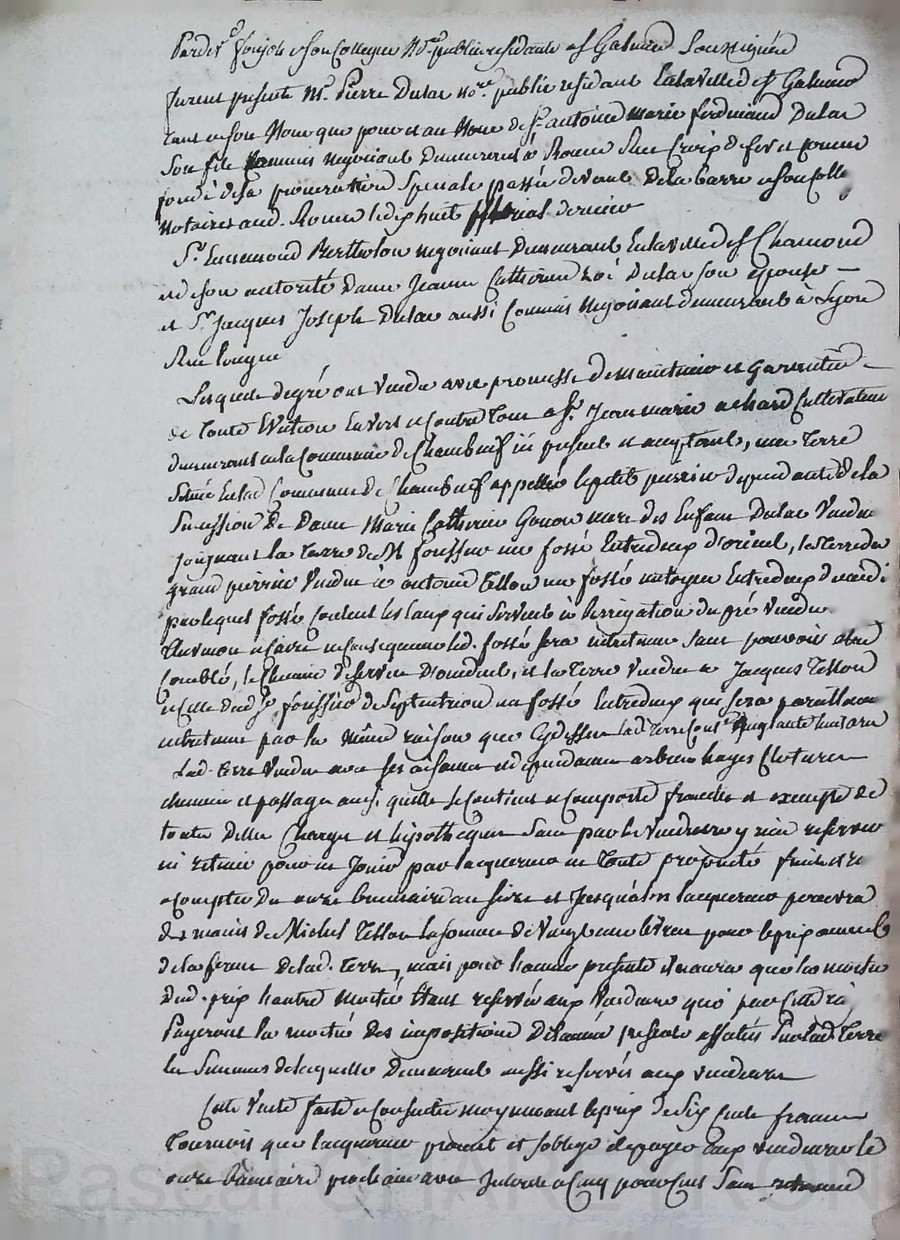 Pardev.t Soujol & son Collegue No.res publics residants a St Galmier Soussignés
furent présents M.e Pierre Dulac no.re public residant En la ville de St Galmier
tant en son Nom que pour et au Nom de S.r antoine Marie ferdinand Dulac
Son fils Commis negotiant Demeurant a Rouen Rue Croix de fer et comme
fondé de sa procuration Speciale passée devant Delabarre & son Colle
Notaires aud. Rouen le dix huit dernier
S.r Ennemond Bertholon negotiant Demeurant En la ville de St Chamond
et de son autorité Dame Jeanne Catherine Dulac son épouse —
et S.r Jacques Joseph Dulac aussi Commis Negotiant demeurant à Lyon
Rue Longue
Lesquels de gré ont Vendu avec promesse de maintenir et Garentir
de toute Eviction Envers et Contre tous a S.r Jean marie achard Cultivateur
demeurant en la Commune de Chambœuf ici présent et acceptant, une terre
Située En lad. Commune de Chambœuf appellée le petit perrin dependante de la
Succession de Dame Marie Catherine Gonon mere des Enfans Dulac Vendu
joignant la terre de M. un fossé Entredeux d'orient, la terre du
grand perrin Vendue à antoine Tellon un fossé mitoyen Entredeux de midi
par lequel fossé Coulent les Eaux qui Servent à l'irrigation du pré Vendu
en Consequence led. fossé sera entretenu Sans pouvoir etre
Comblé, le Chemin de Service d'occident, et la terre Vendue a Jacques Tellon
et Celle dud. S.r de Septentrion un fossé Entredeux qui sera pareillement
entretenu par la Même raison que Cy dessus lad. terre Cont.t
Lad. terre Vendue avec ses aisances et dépendances arbres hayes Clotures
chemins et passages ainsi qu'elle se Contient & Comporte franche et exempte de
toutes dettes Charges et hipotheques Sans par les Vendeurs y rien reserver
ni retenir pour en Jouir par l'acquereur en toute propriété fruits etc
a Compter du onze brumaire an Seize et Jusqu'alors l'acquereur percevra
des mains de Michel Tellon la somme de Vingt livres pour le prix annuel
de la ferme de lad. terre, mais pour l'année présente il n'aura que la moitié
dud. prix l'autre moitié Etant reservée aux Vendeurs qui par Contre
Payeront la moitié des impositions de l'année presente affectées Sur lad. terre
les Semences de laquelle Demeurent aussi reservées aux vendeurs
Cette Vente faite & Consentie moyennant le prix de Six Cents francs
Tournois que l'acquereur promet et s'oblige de payer aux vendeurs le
onze brumaire prochain avec Interets a Cinq pour Cent Sans retenue
Pascal CHARETRON